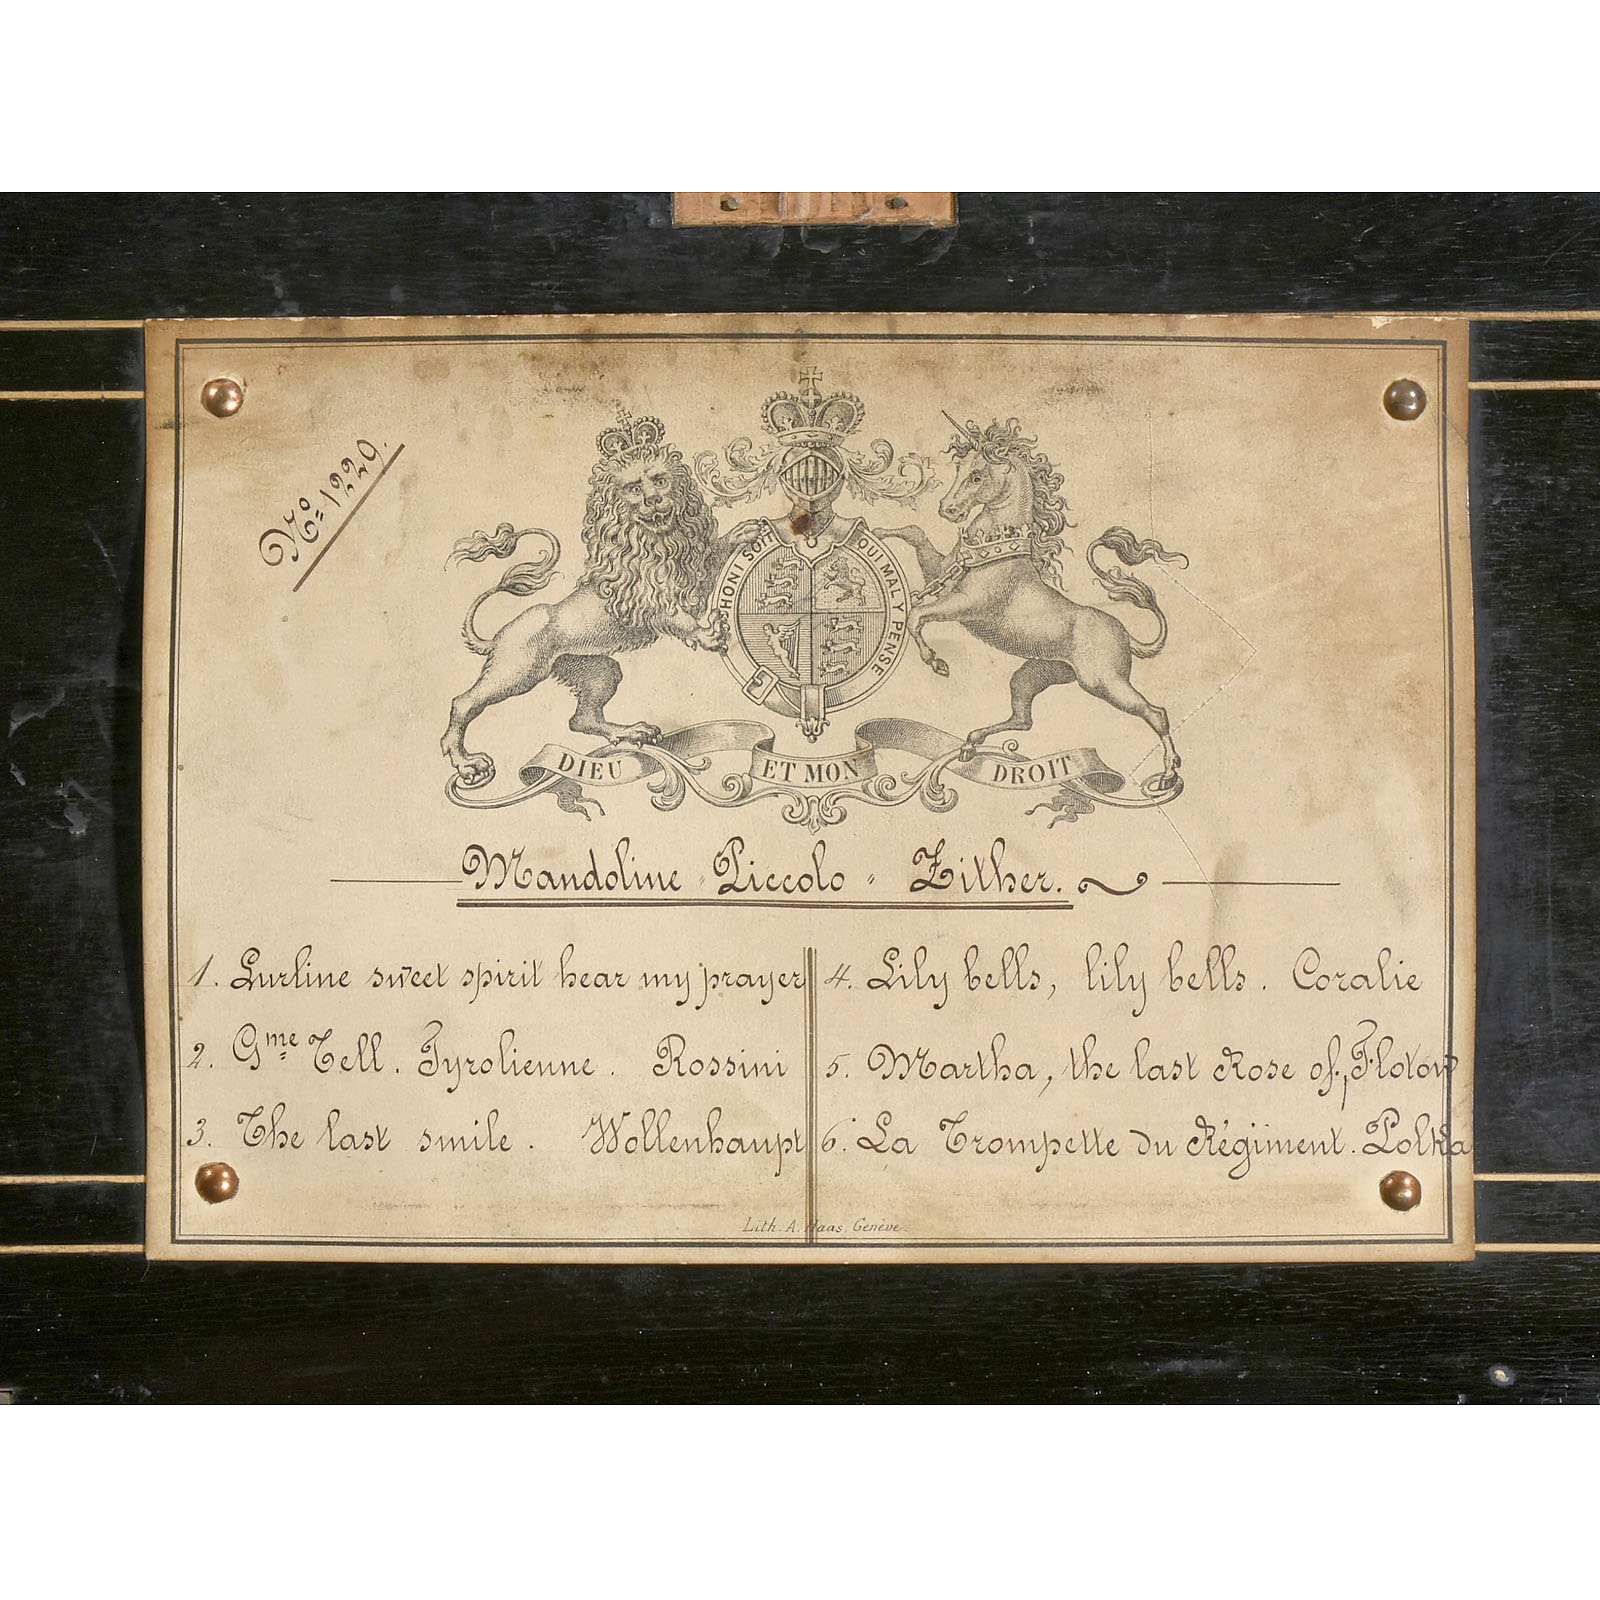 No = 1229.
HONI SOIT QUI MAL Y PENSE
DIEU ET MON DROIT
Mandoline - Piccolo - Zither.
1. Lurline sweet spirit hear my prayer
2. Gme Tell. Tyrolienne. Rossini
3. The last smile. Wollenhaupt
4. Lily bells, lily bells. Coralie
5. Martha, the last Rose of, Flotow
6. La Trompette du Régiment. Polka
Lith. A. Haas, Genève.